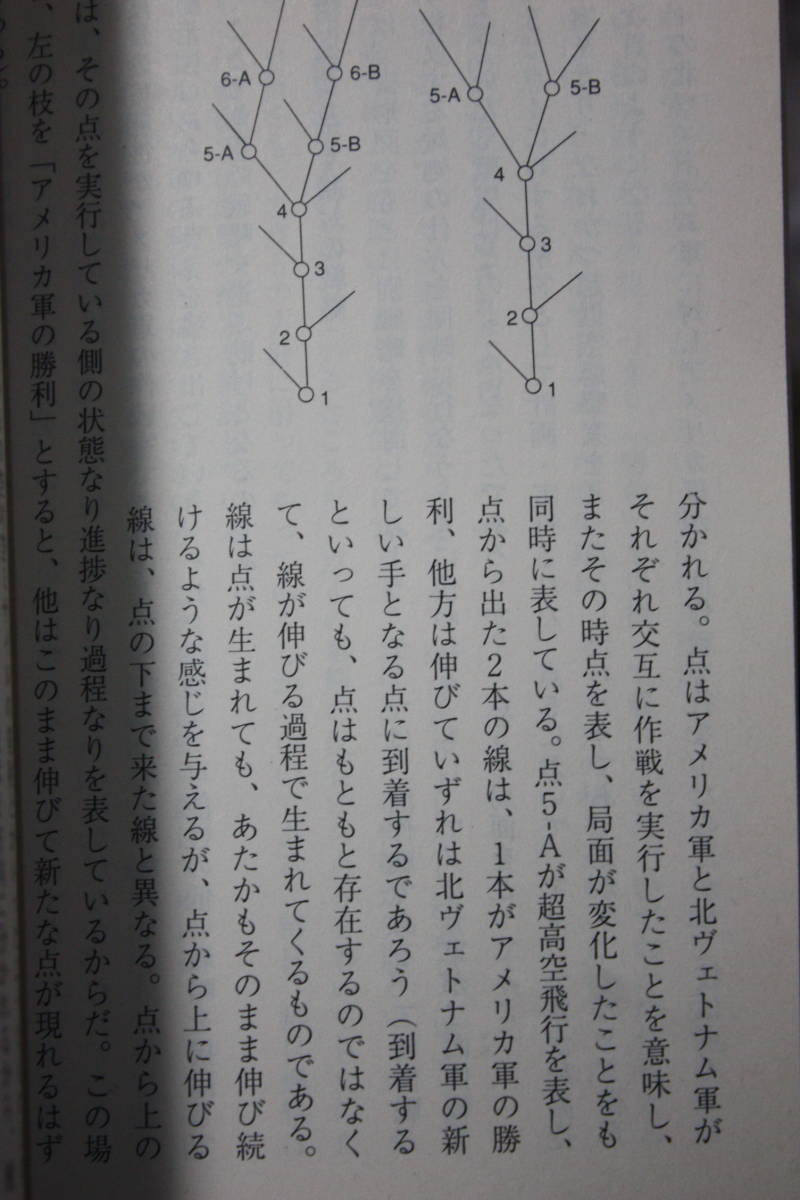 6-A
6-B
5-A
5-B
4
3
2
1
5-A
5-B
4
3
2
1
分かれる。点はアメリカ軍と北ヴェトナム軍が
それぞれ交互に作戦を実行したことを意味し、
またその時点を表し、局面が変化したことをも
同時に表している。点5-Aが超高空飛行を表し、
点から出た2本の線は、1本がアメリカ軍の勝
利、他方は伸びていずれは北ヴェトナム軍の新
しい手となる点に到着するであろう（到着する
といっても、点はもともと存在するのではなく
て、線が伸びる過程で生まれてくるものである。
線は点が生まれても、あたかもそのまま伸び続
けるような感じを与えるが、点から上に伸びる
線は、点の下まで来た線と異なる。点から上の
は、その点を実行している側の状態なり進捗なり過程なりを表しているからだ。この場
、左の枝を「アメリカ軍の勝利」とすると、他はこのまま伸びて新たな点が現れるはず